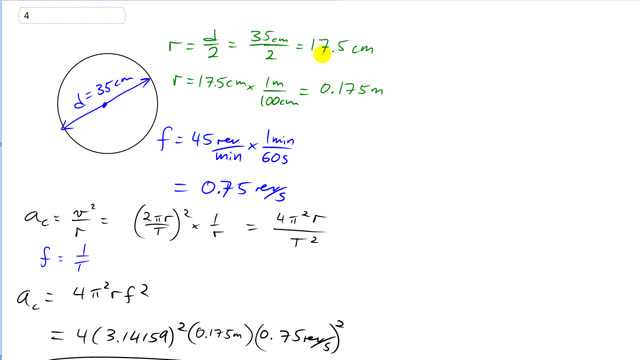 4
r = d/2 = 35cm/2 = 17.5 cm
d = 35cm
r = 17.5cm × 1m/100cm = 0.175m
f = 45 rev/min × 1min/60s
= 0.75 rev/s
a_c = v²/r = (2πr/T)² × 1/r = 4π²r/T²
f = 1/T
a_c = 4π²rf²
= 4(3.14159)²(0.175m)(0.75rev/s)²